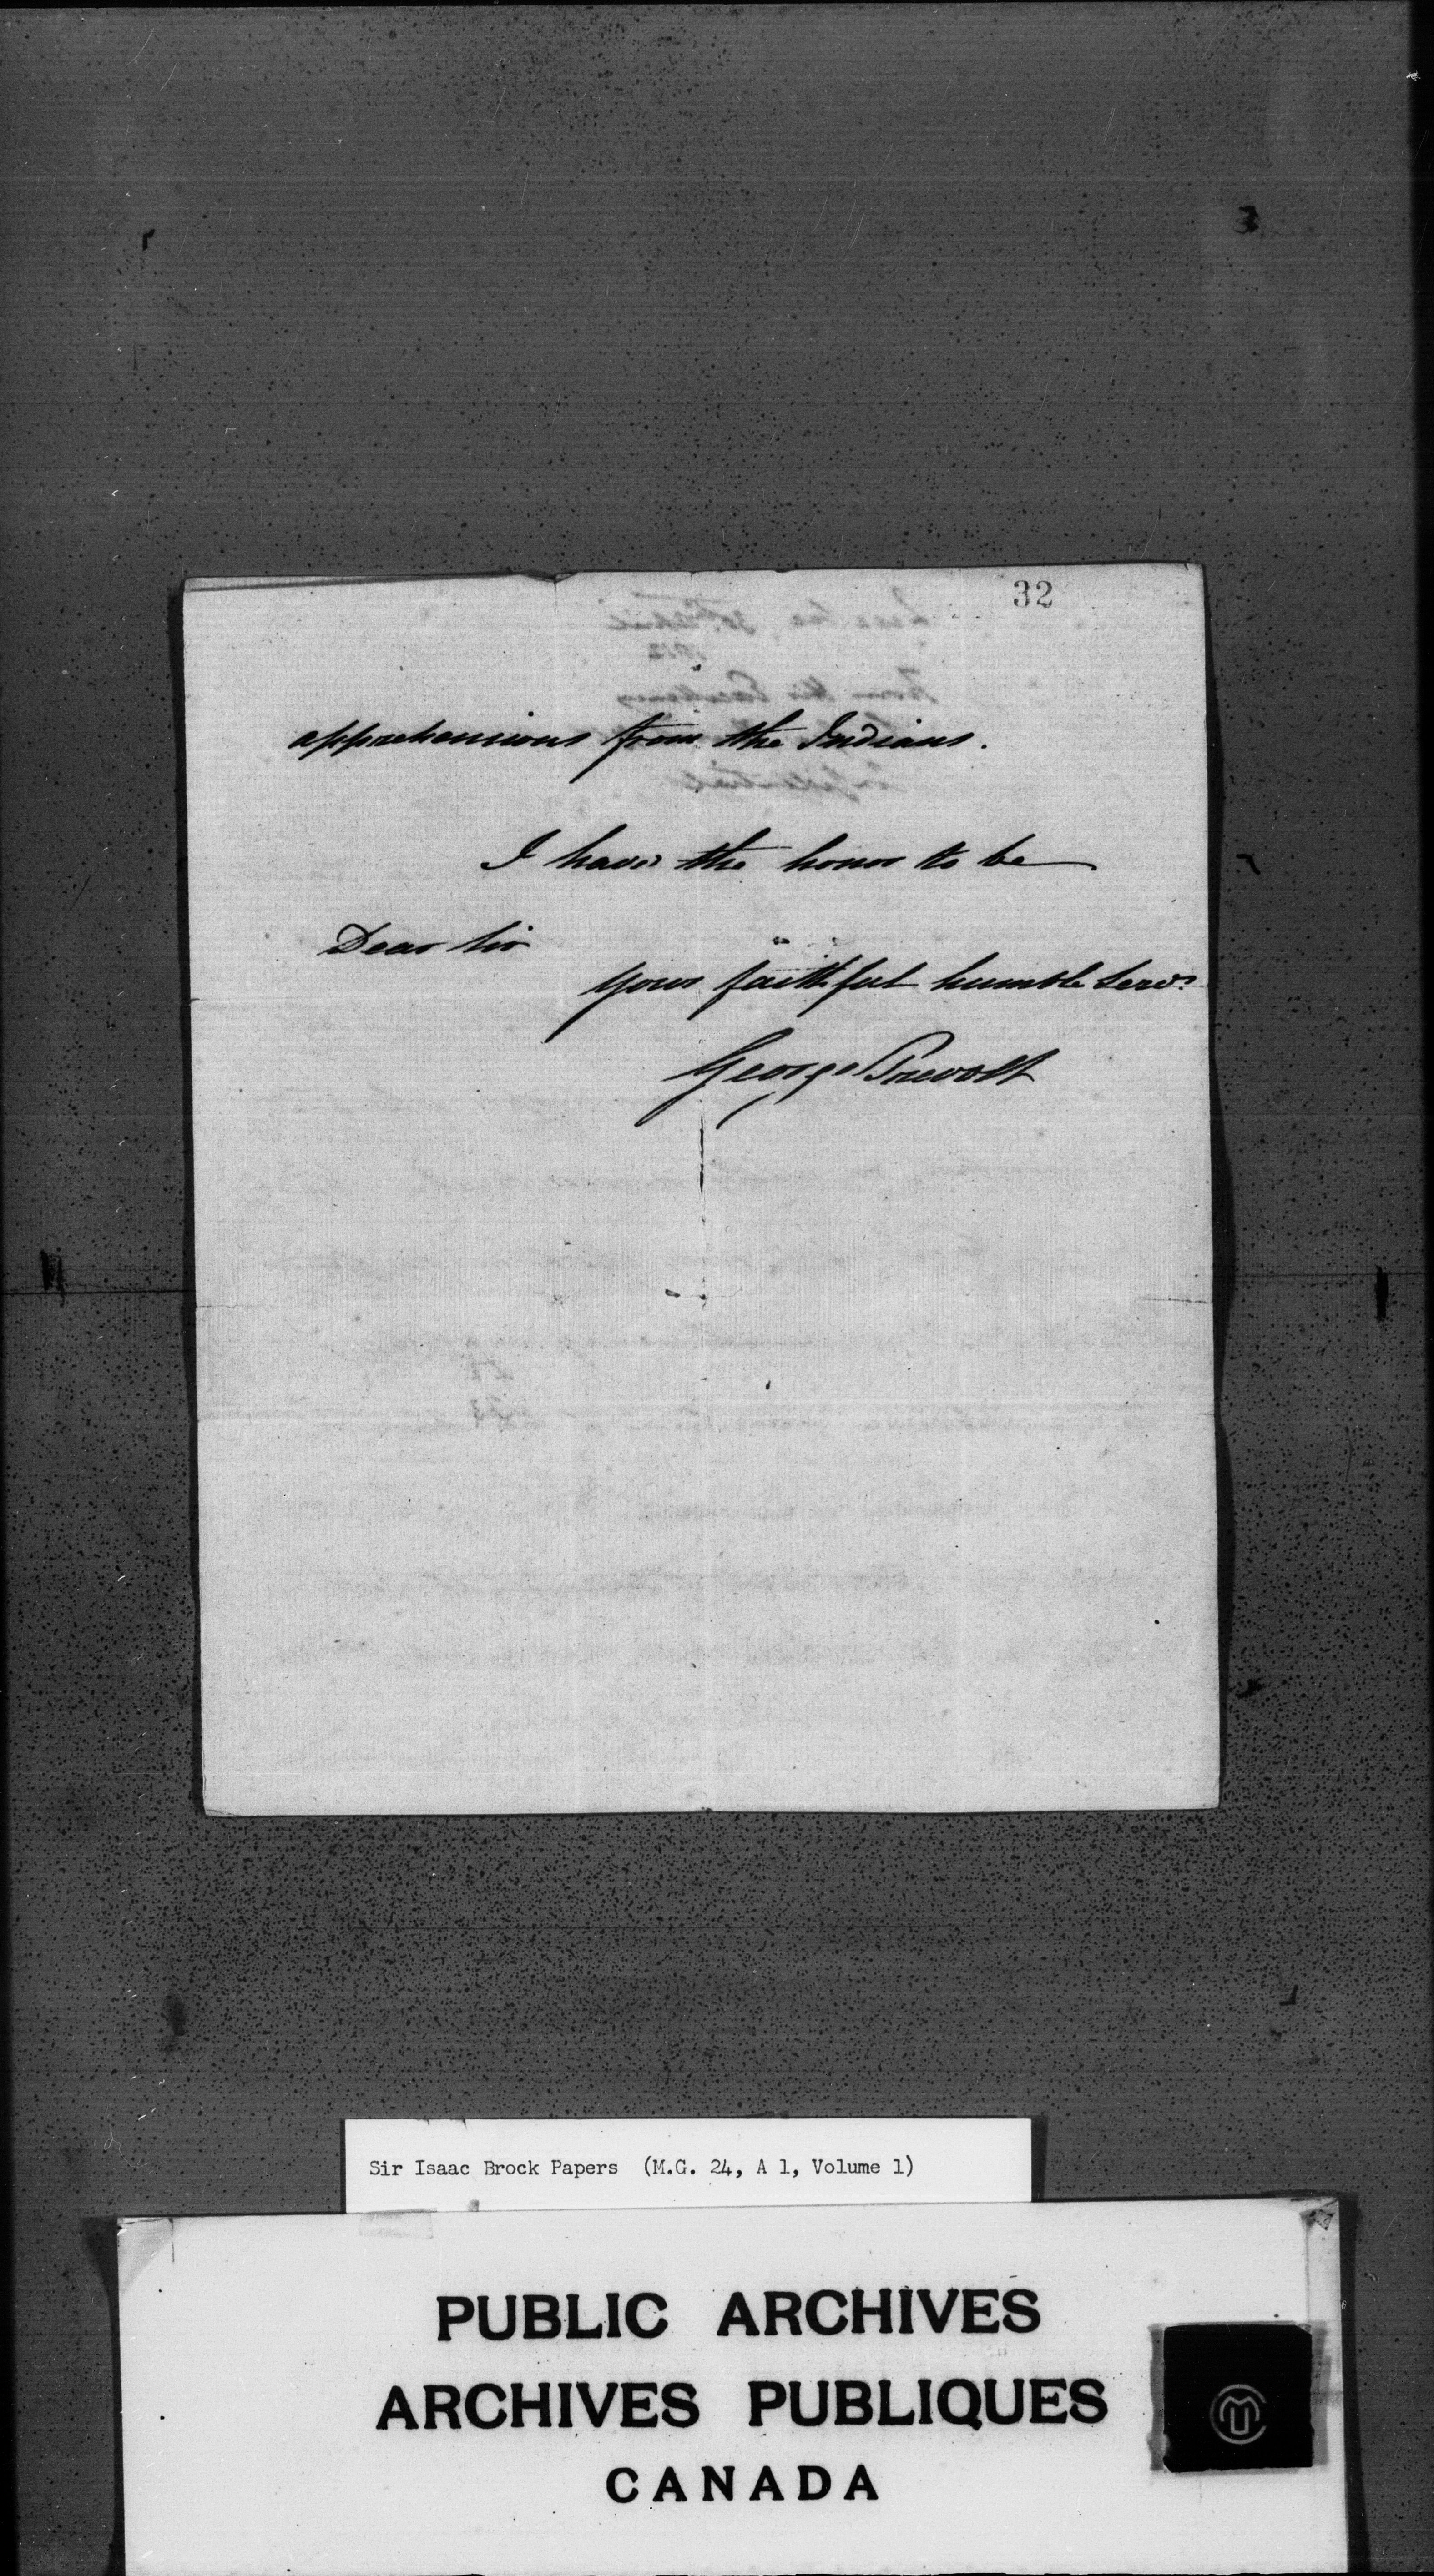 32
apprehensions from the Indians.
I have the honor to be
Dear Sir
your faithful humble Servt
George Prevost
Sir Isaac Brock Papers (M.G. 24, A 1, Volume 1)
PUBLIC ARCHIVES
ARCHIVES PUBLIQUES
CANADA